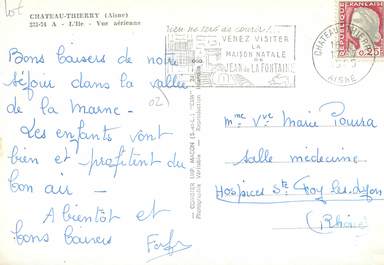 CHATEAU-THIERRY (Aisne)
223-51 A - L'Ile - Vue aérienne
Bons baisers de notre
séjour dans la vallée
de la Marne -
Les enfants vont
bien et profitent du
bon air -
A bientôt et
bons baisers
02
"Rien ne sert de courir!..."
VENEZ VISITER
LA
MAISON NATALE
DE
JEAN de LA FONTAINE
CHATEAU-THIERRY
AISNE
0,25
COMBIER IMP. MACON (S.-et-L.)
Photographie Véritable - Reproduction Interdite
Mme Vve Marie
Salle médecine
Hospices Ste Foy les Lyon
(Rhône)